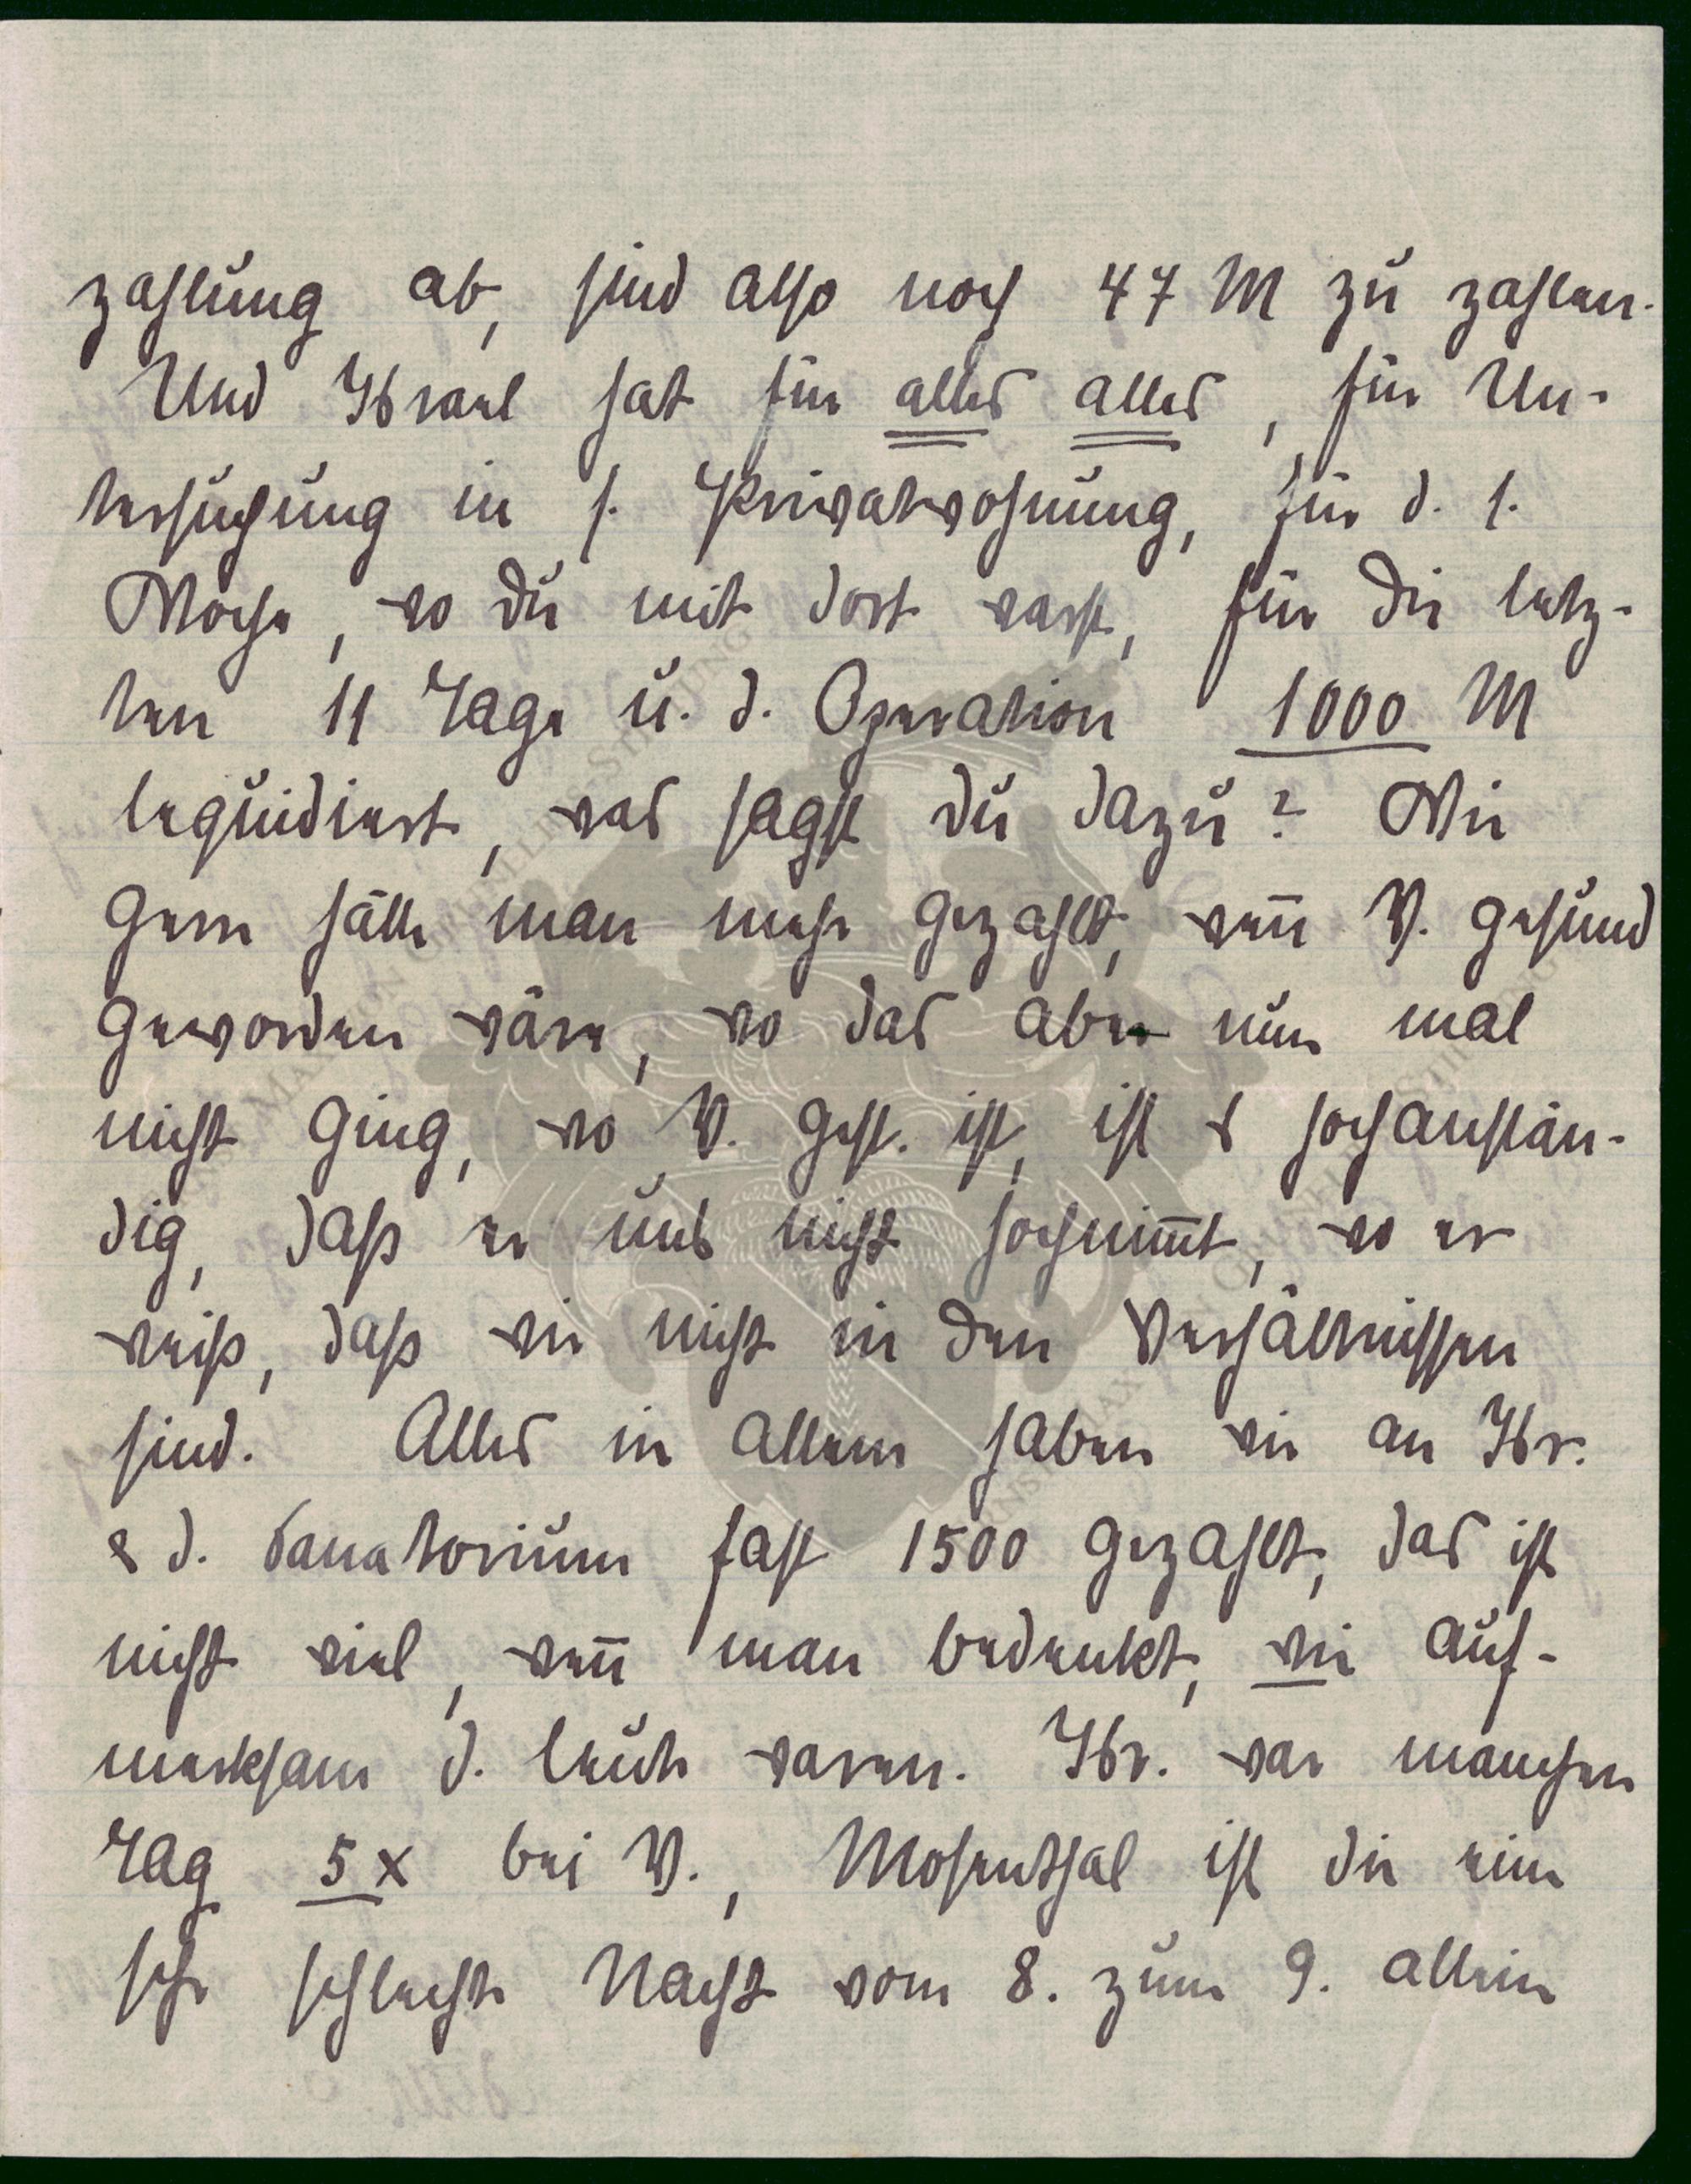 zahlung ab, sind also noch 47 M zu zahlen.
Und Israel hat für alles alles, für Un-
tersuchung in s. Privatwohnung, für d. 1.
Woche, wo du mit dort warst, für die letz-
ten 11 Tage u. d. Operation 1000 M
lequidiert, was sagst du dazu? Wie
gern hätte man mehr gezahlt, wen̄ V. gesund
geworden wäre, wo das aber nun mal
nicht ging, wo V. gest. ist, ist es hochanstän-
dig, daß er uns nicht hochnim̄t, wo er
weiß, daß wir nicht in den Verhältnissen
sind. Alles in allem haben wir an Isr.
& d. Sanatorium fast 1500 gezahlt, das ist
nicht viel, wen̄ man bedenkt, wie auf-
merksam d. Leute waren. Isr. war manchen
Tag 5 x bei V., Mosenthal ist die eine
sehr schlechte Nacht vom 8. zum 9. allein